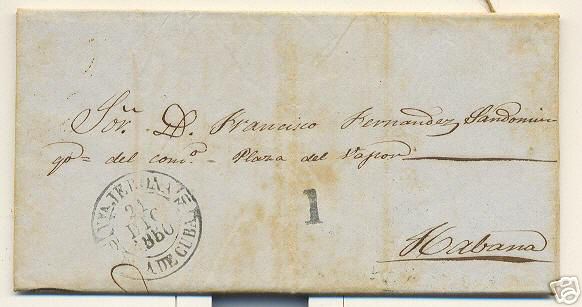 Sor. D. Francisco Fernandez Sandomin-
go= del como.= Plaza del Vapor
24
DIC
1860
A DE CUBA
1
Habana